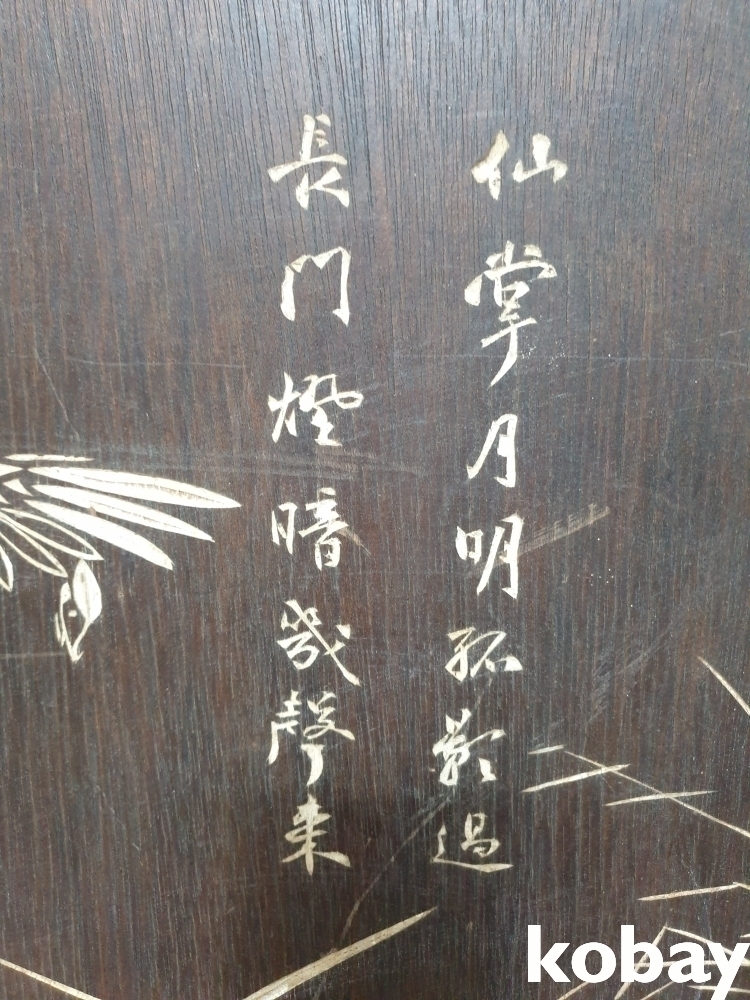 仙掌月明孤影過
長門燈暗幾聲来
kobay